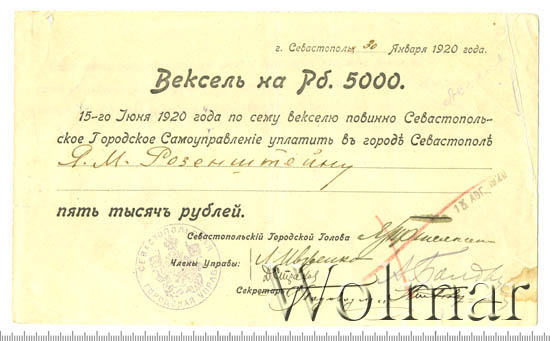 г. Севастополь 30 Января 1920 года.
Вексель на Рб. 5000.
15-го Іюня 1920 года по сему векселю повинно Севастополь-
ское Городское Самоуправленіе уплатить въ городѣ Севастополѣ
Я. М. Розенштейну
пять тысячъ рублей.
13 АВГ. 1920
Севастопольскій Городской Голова
Члены Управы:
СЕВАСТОПОЛЬСКАЯ ГОРОДСКАЯ УПРАВА
Секретарь
Wolmar